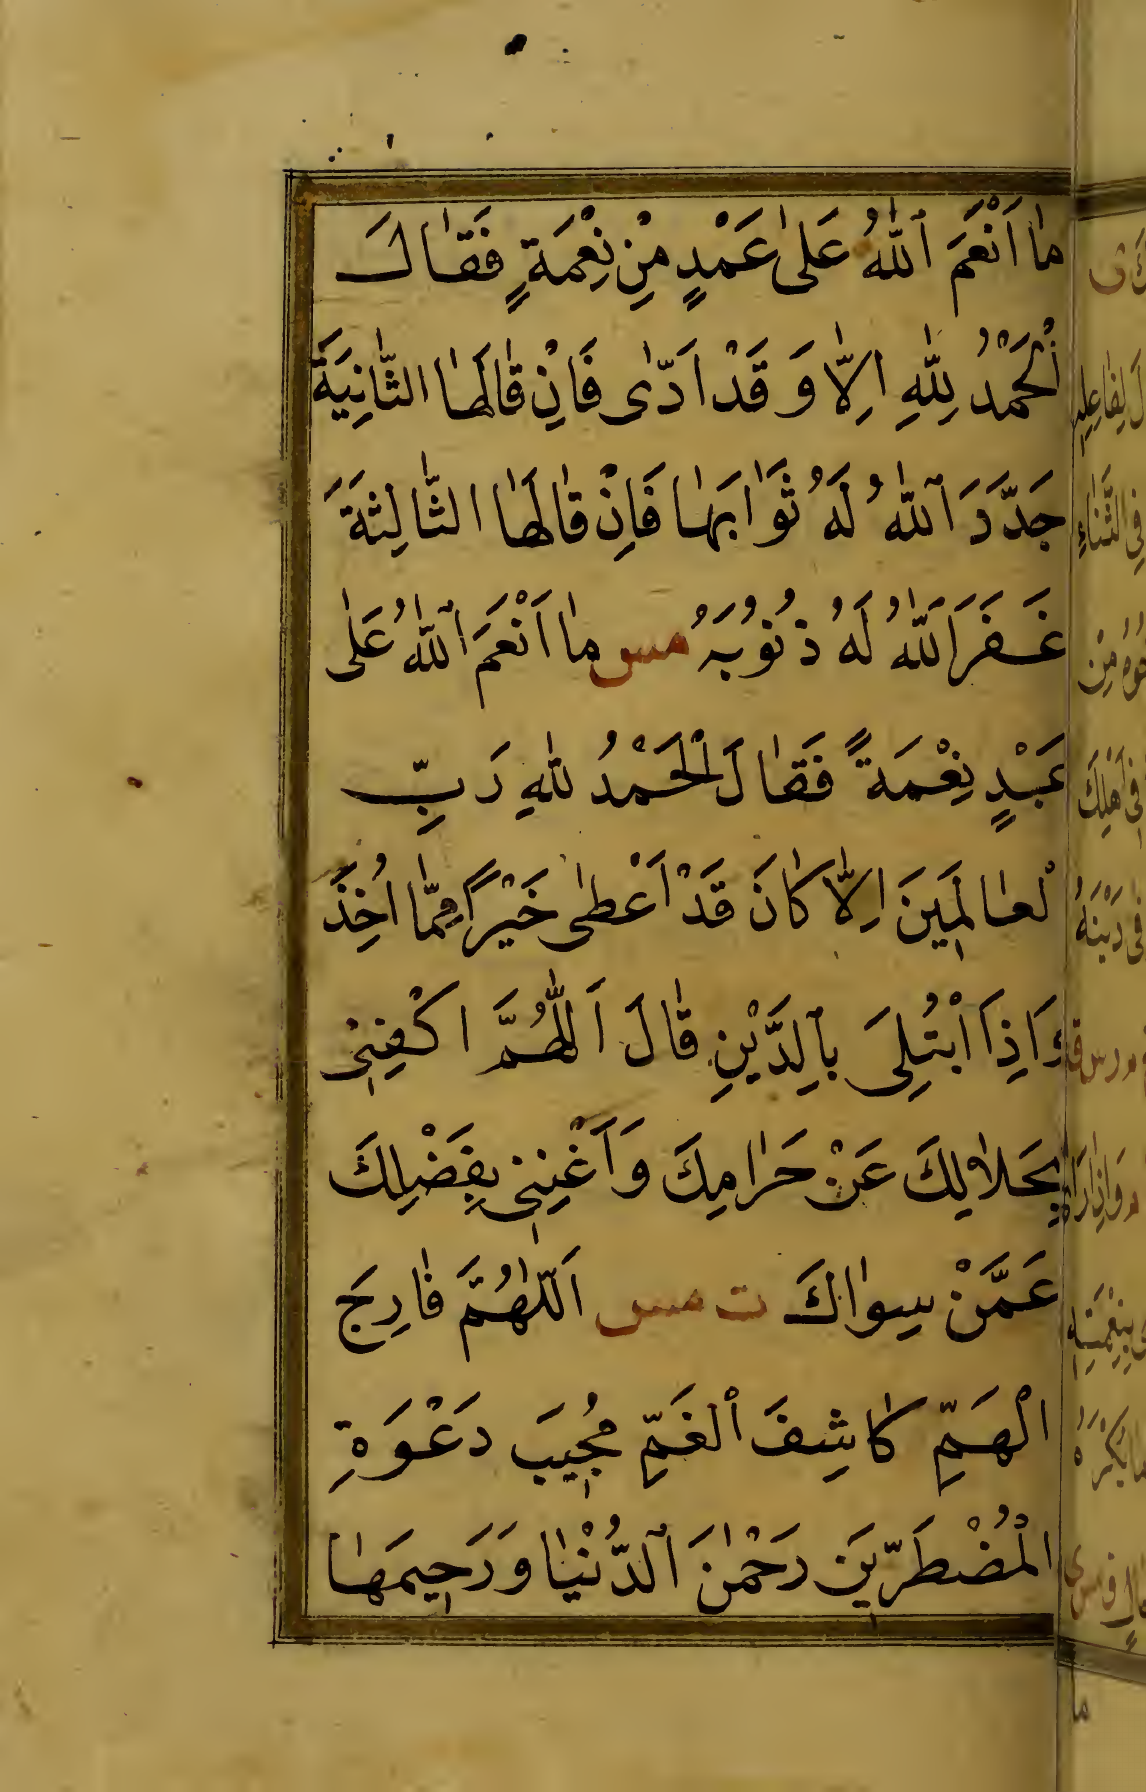 مٰا اَنْعَمَ ٱللّٰهُ عَلىٰ عَبْدٍ مِنْ نِعْمَةٍ فَقٰالَ
اَلْحَمْدُ لِلّٰهِ اِلاّٰ وَ قَدْ اَدّٰى فَاِنْ قٰالَهٰا الثّٰانِيَةَ
جَدَّدَ ٱللّٰهُ لَهُ ثَوٰابَهٰا فَاِنْ قٰالَهٰا الثّٰالِثَةَ
غَفَرَ ٱللّٰهُ لَهُ ذُنُوبَهُ مس مٰا اَنْعَمَ ٱللّٰهُ عَلىٰ
عَبْدٍ نِعْمَةً فَقٰالَ اَلْحَمْدُ لِلّٰهِ رَبِّ
لْعٰالَمِينَ اِلاّٰ كٰانَ قَدْ اَعْطىٰ خَيْرًا مِمّٰا اُخِذَ
وَاِذَا ابْتُلِىَ بِالدَّيْنِ قٰالَ اَللّٰهُمَّ اكْفِنِى
بِحَلاٰلِكَ عَنْ حَرٰامِكَ وَاَغْنِنِى بِفَضْلِكَ
عَمَّنْ سِوٰاكَ ت مس اَللّٰهُمَّ فٰارِجَ
الْهَمِّ كٰاشِفَ ٱلْغَمِّ مُجِيبَ دَعْوَةِ
الْمُضْطَرِّينَ رَحْمٰنَ ٱلدُّنْيٰا وَرَحِيمَهٰا